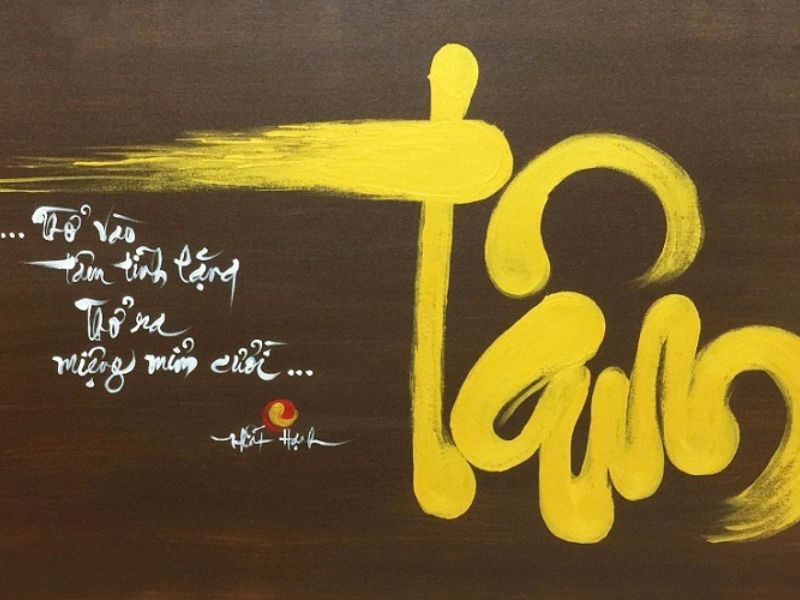 Tâm
... Thở vào
tâm tĩnh lặng
Thở ra
miệng mỉm cười ...
Nhất Hạnh